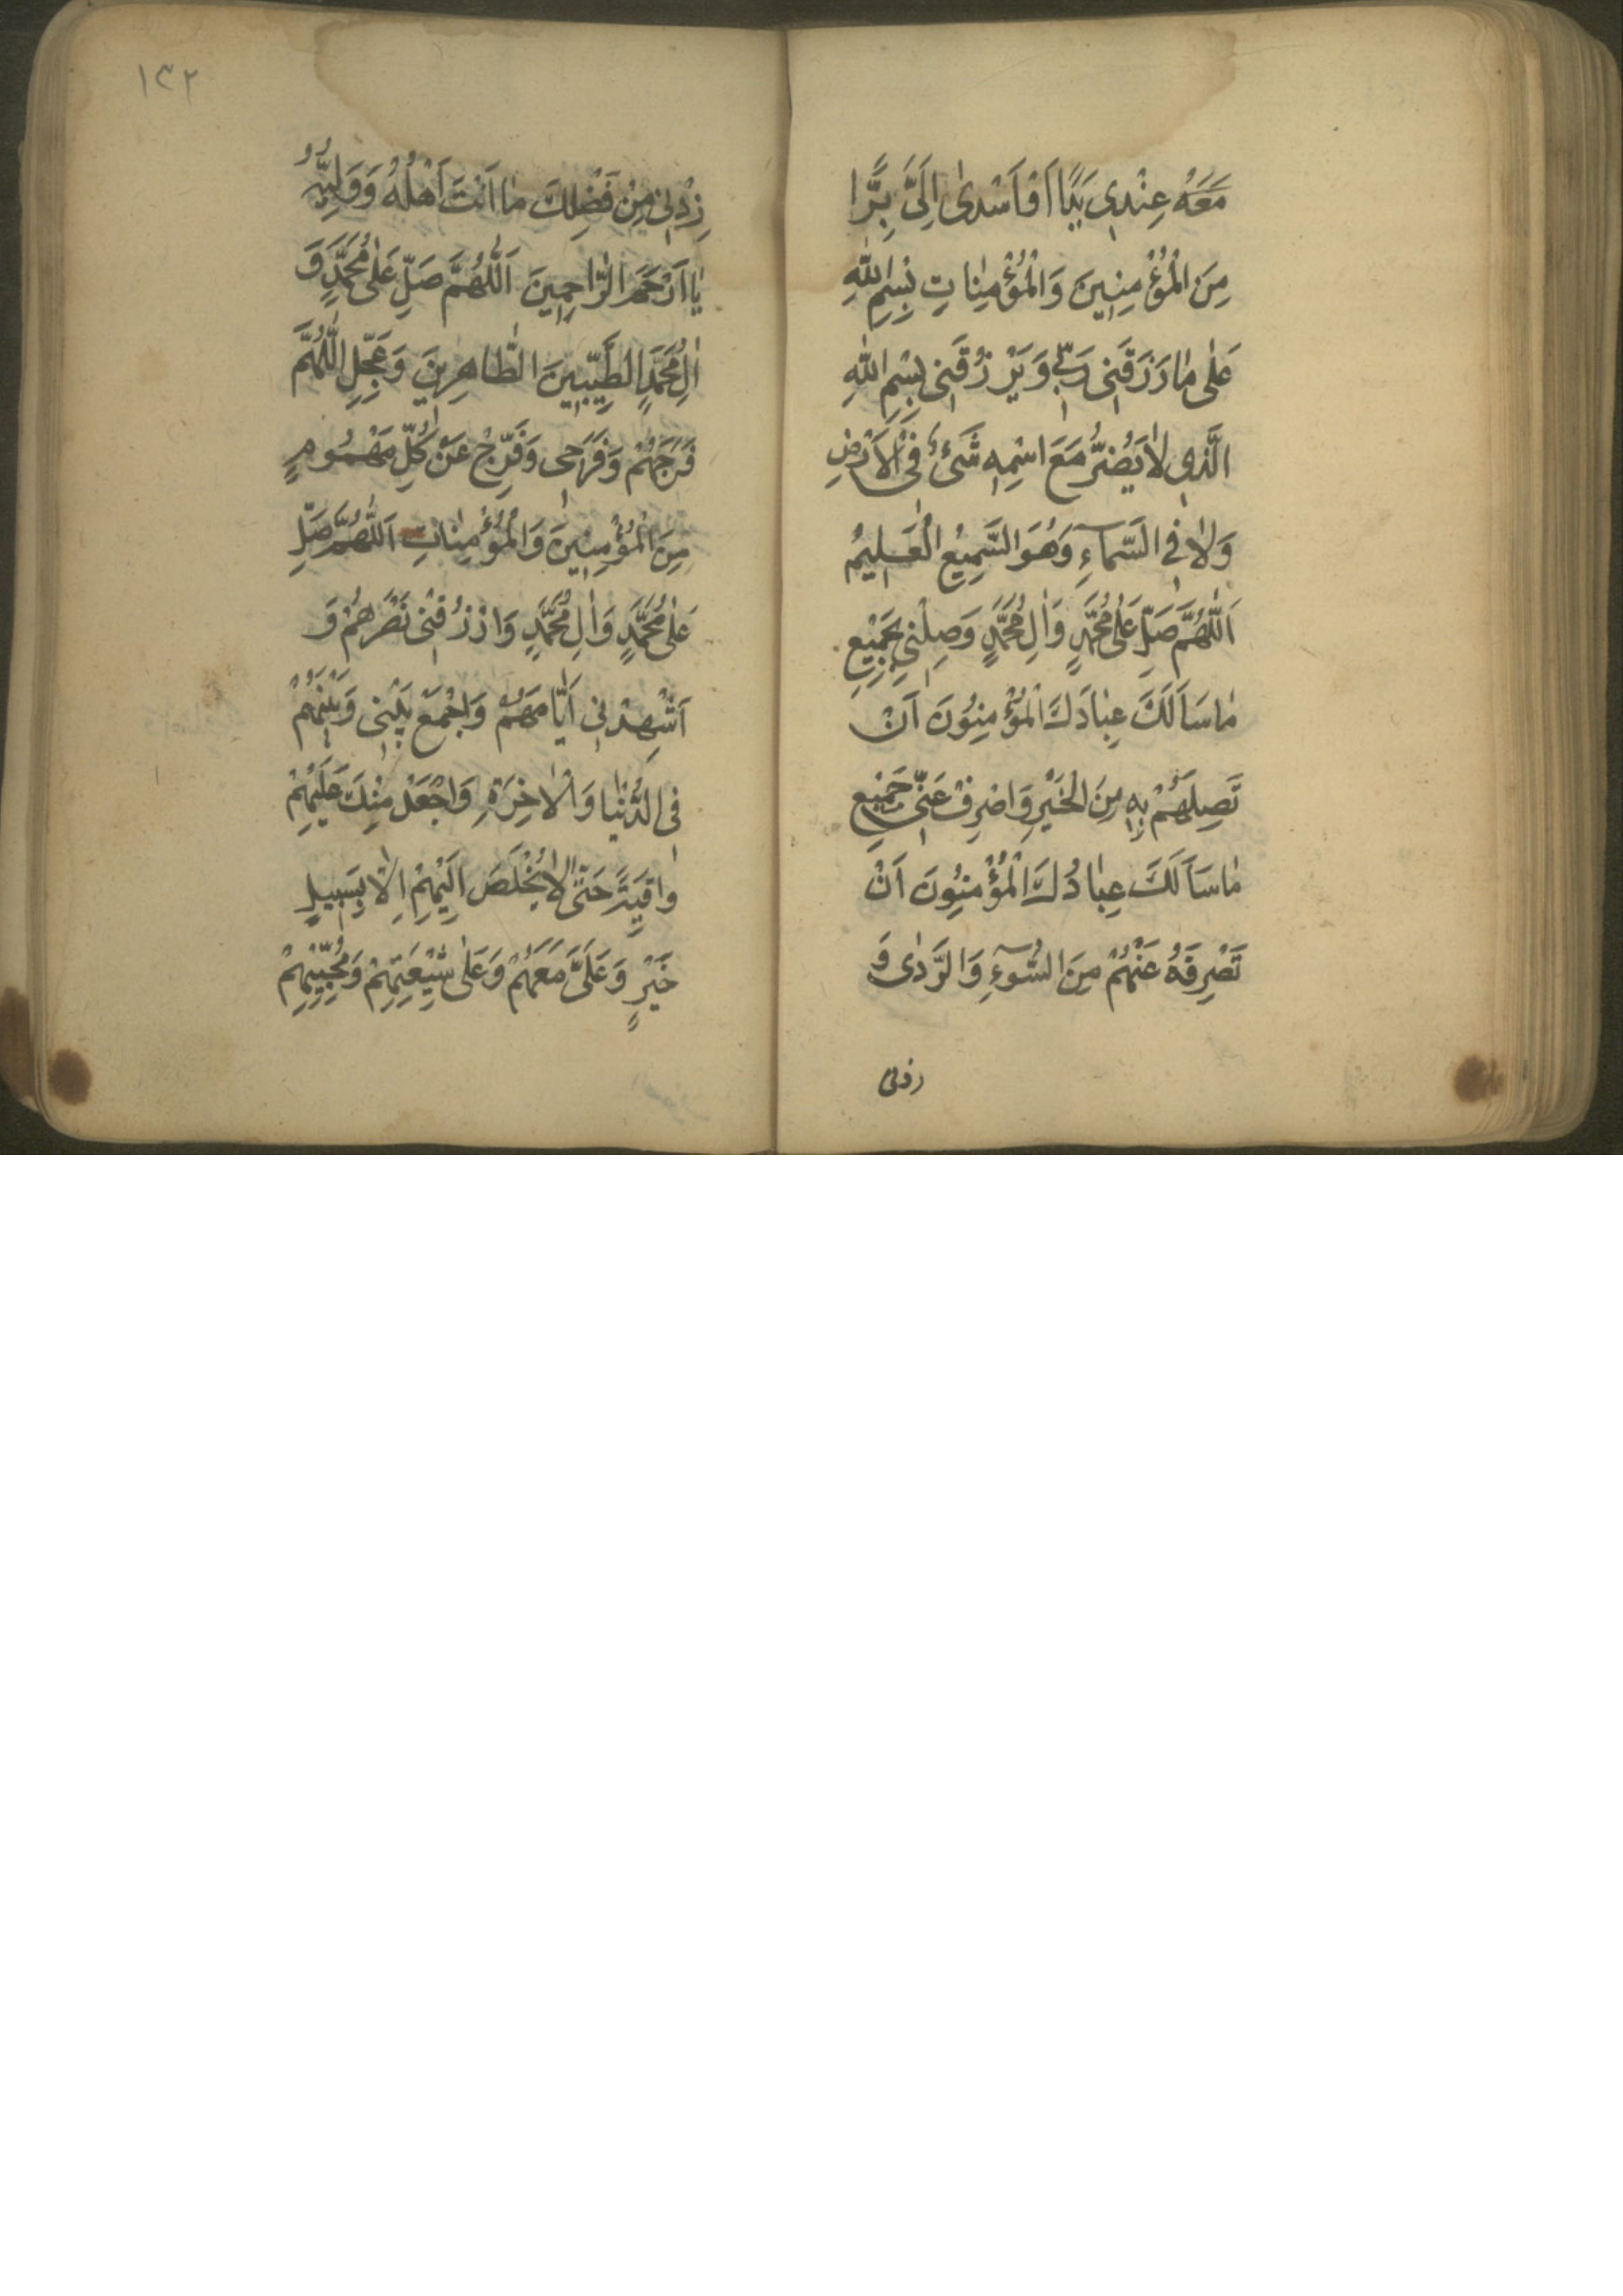 مَعَهُ عِنْدِي يَدًا اَوْ اَسْدىٰ اِلَىَّ بِرًّا
مِنَ الْمُؤْمِنِينَ وَالْمُؤْمِنٰاتِ بِسْمِ اللّٰهِ
عَلىٰ مٰا رَزَقَنِى رَبِّى وَ يَرْزُقُنِى بِسْمِ اللّٰهِ
الَّذِى لٰا يَضُرُّ مَعَ اسْمِهِ شَىْءٌ فِى الْاَرْضِ
وَلٰا فِى السَّمآءِ وَهُوَ السَّمِيعُ الْعَلِيمُ
اَللّٰهُمَّ صَلِّ عَلىٰ مُحَمَّدٍ وَاٰلِ مُحَمَّدٍ وَصِلْنِى بِجَمِيْعِ
مٰا سَاَلَكَ عِبٰادَكَ الْمُؤْمِنُونَ اَنْ
تَصِلَهُمْ بِهِ مِنَ الْخَيْرِ وَاصْرِفْ عَنِّى جَمِيْعِ
مٰا سَاَلَكَ عِبٰادُكَ الْمُؤْمِنُونَ اَنْ
تَصْرِفَهُ عَنْهُمْ مِنَ السُّوۤءِ وَالرَّدىٰ وَ
زدنى
١٣٢
زِدْنِى مِنْ فَضْلِكَ مٰا اَنْتَ اَهْلُهُ وَوَلِيُّهُ
يٰا اَرْحَمَ الرّٰاحِمِينَ اَللّٰهُمَّ صَلِّ عَلىٰ مُحَمَّدٍ وَ
اٰلِ مُحَمَّدٍ الطَّيِّبِينَ الطّٰاهِرِينَ وَعَجِّلِ اللّٰهُمَّ
فَرَجَهُمْ وَفَرَجِى وَفَرِّجْ عَنْ كُلِّ مَهْمُومٍ
مِنَ الْمُؤْمِنِينَ وَالْمُؤْمِنٰاتِ اَللّٰهُمَّ صَلِّ
عَلىٰ مُحَمَّدٍ وَاٰلِ مُحَمَّدٍ وَارْزُقْنِى نَصْرَهُمْ وَ
اَشْهِدْنِى اَيّٰامَهُمْ وَاجْمَعْ بَيْنِى وَبَيْنَهُمْ
فِى الدُّنْيٰا وَالْاٰخِرَةِ وَاجْعَلْ مِنْكَ عَلَيْهِمْ
وٰاقِيَةً حَتّٰى لٰا يُخْلَصَ اِلَيْهِمْ اِلّٰا بِسَبِيلِ
خَيْرٍ وَعَلَىَّ مَعَهُمْ وَعَلىٰ شِيْعَتِهِمْ وَمُحِبِّيْهِمْ